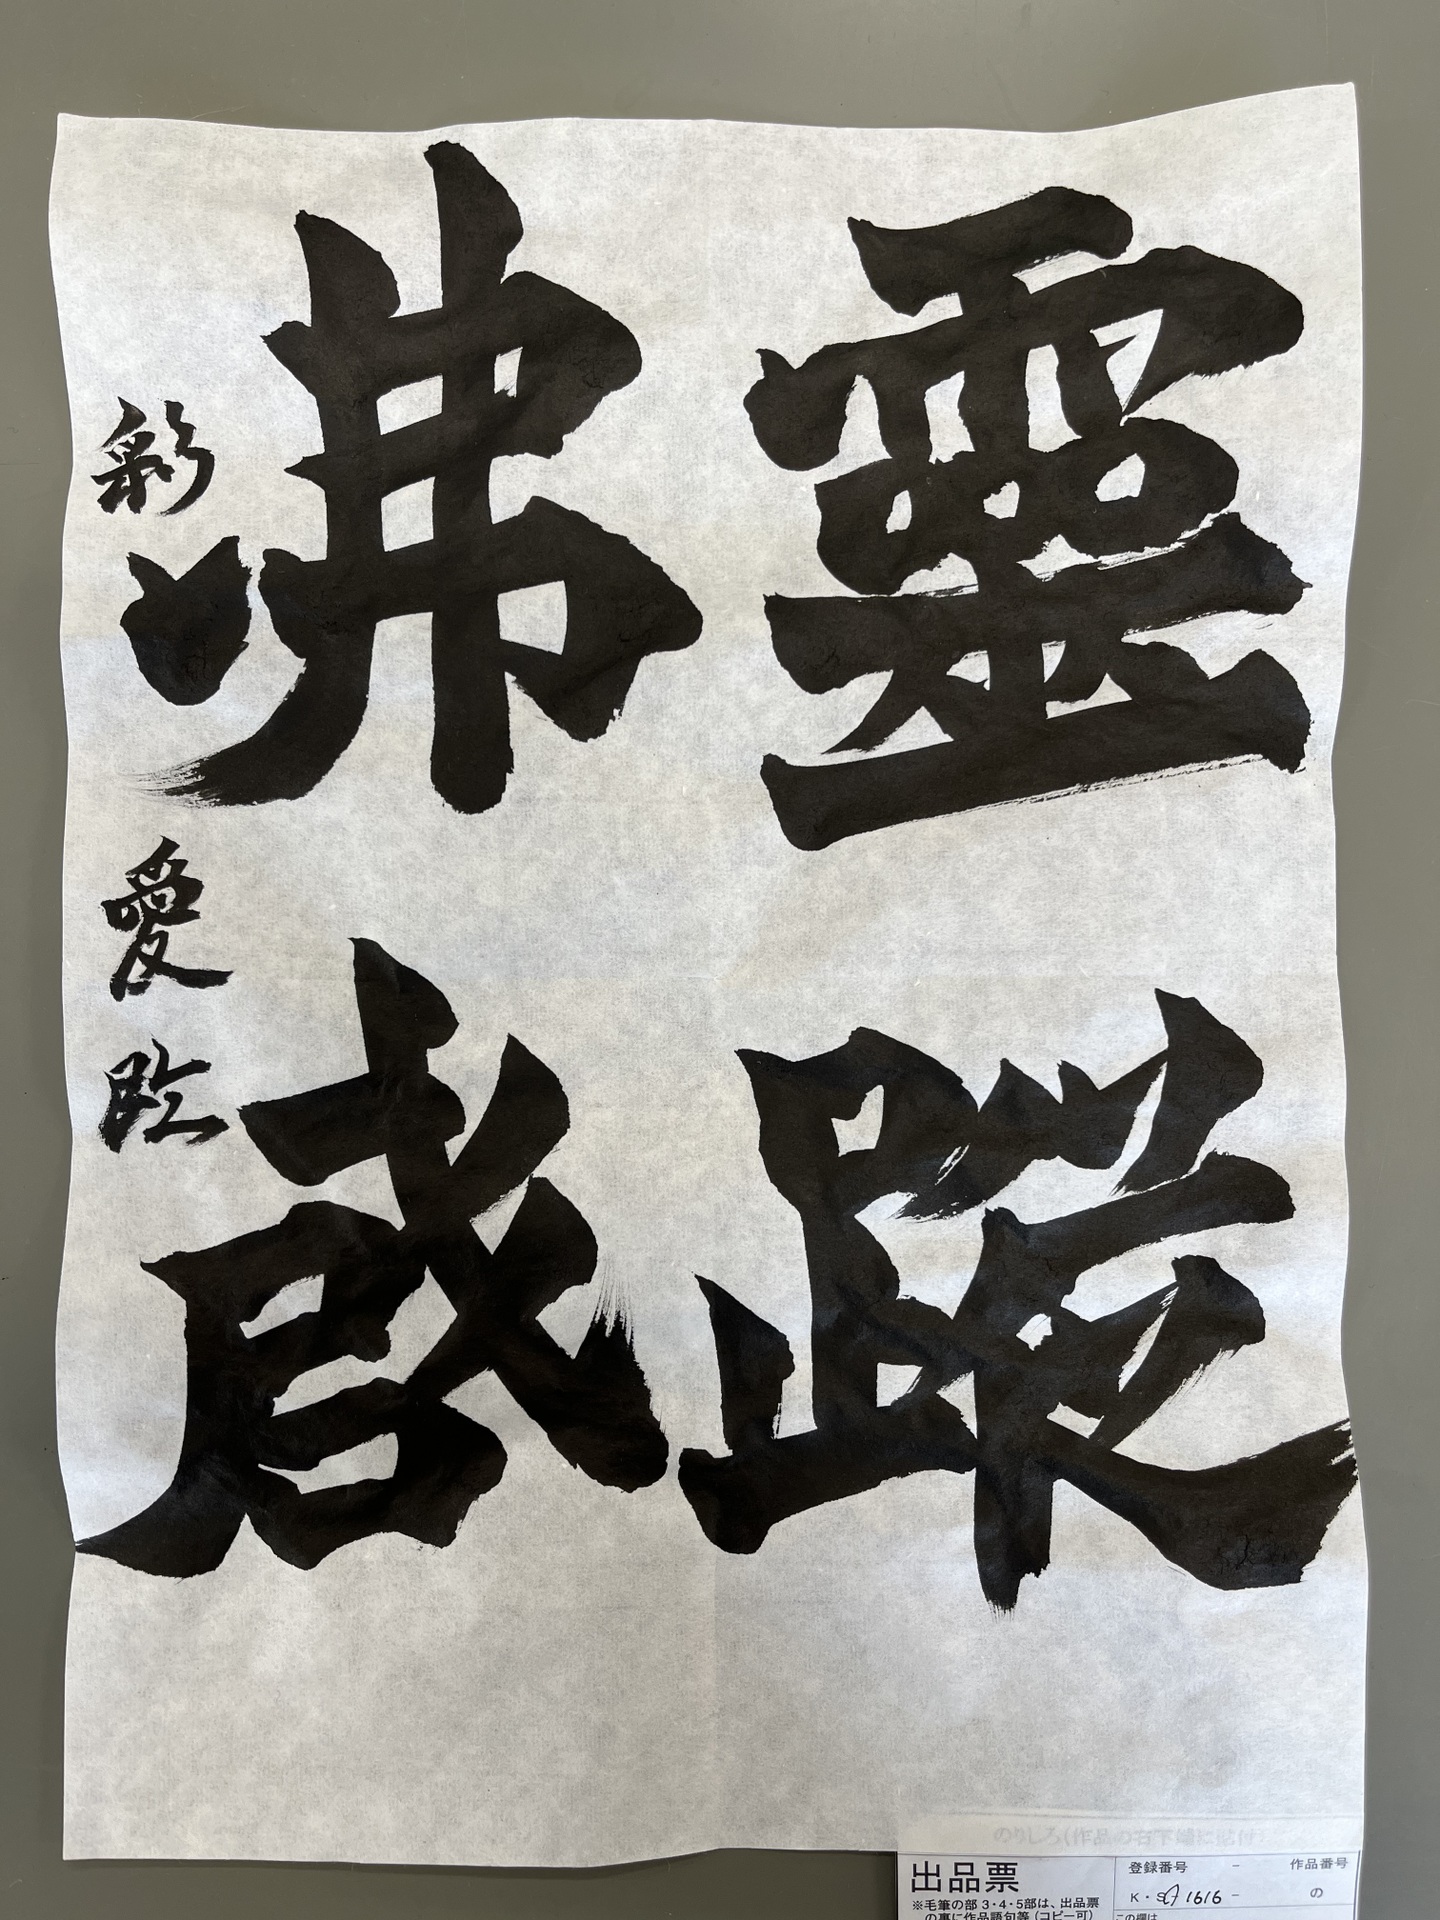 靈蹤
弗啓
彩愛臨
のりしろ（作品の右下端に貼付）
出品票
※毛筆の部 3・4・5部は、出品票
の裏に作品語句等（コピー可）
登録番号 － 作品番号
K・S 1616 － の
この欄は